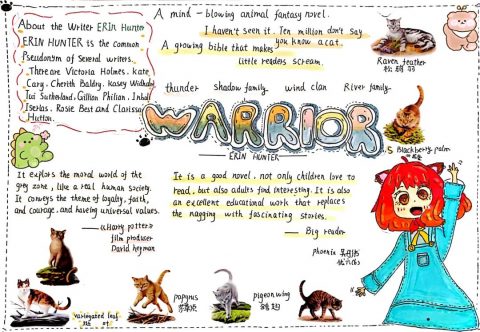 About the Writer ERIN Hunter
ERIN HUNTER is the common
Pseudonym of Several writers.
There are Victoria Holmes. Kate
Cary. Cherith Baldry. Kasey Widhalm
Tui Sutherland. Gillian Philian. Inbali
Iserles. Rosie Best and Clarissa
Hutton.
A mind-blowing animal fantasy novel.
I haven't seen it. Ten million don't say
you know a cat.
A growing bible that makes
little readers scream.
Raven feather
thunder shadow family wind clan River family
WARRIOR
—— ERIN HUNTER
Blackberry palm
It explors the moral world of the
grey zone, like a real human society.
It conveys the theme of loyalty, faith,
and courage, and having universal values.
——《Harry potter》
film producer
David heyman
It is a good novel, not only children love to
read, but also adults find interesting. It is also
an excellent educational work that replaces
the nagging with fascinating stories.
—— Big reader
phoenix
variegated leaf
papyrus
pigeon wing